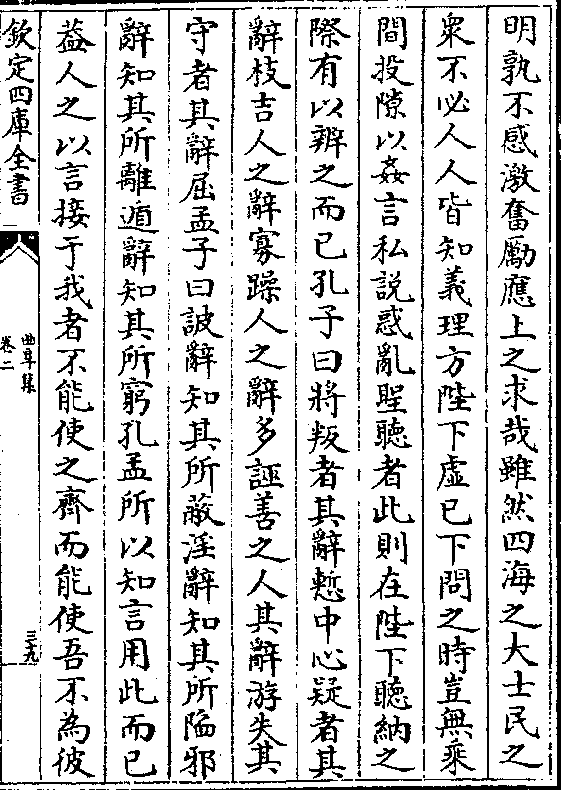 明孰不感激奮勵應上之求哉雖然四海之大士民之
衆不必人人皆知義理方陛下虛已下問之時豈無乘
間投隙以姦言私說惑亂聖聽者此則在陛下聽納之
際有以辨之而已孔子曰將叛者其辭慙中心疑者其
辭枝吉人之辭寡躁人之辭多誣善之人其辭游失其
守者其辭屈孟子曰詖辭知其所蔽淫辭知其所陥邪
辭知其所離遁辭知其所窮孔孟所以知言用此而已
葢人之以言接于我者不能使之齊而能使吾不為彼
欽定四庫全書
曲阜集
卷二
三九